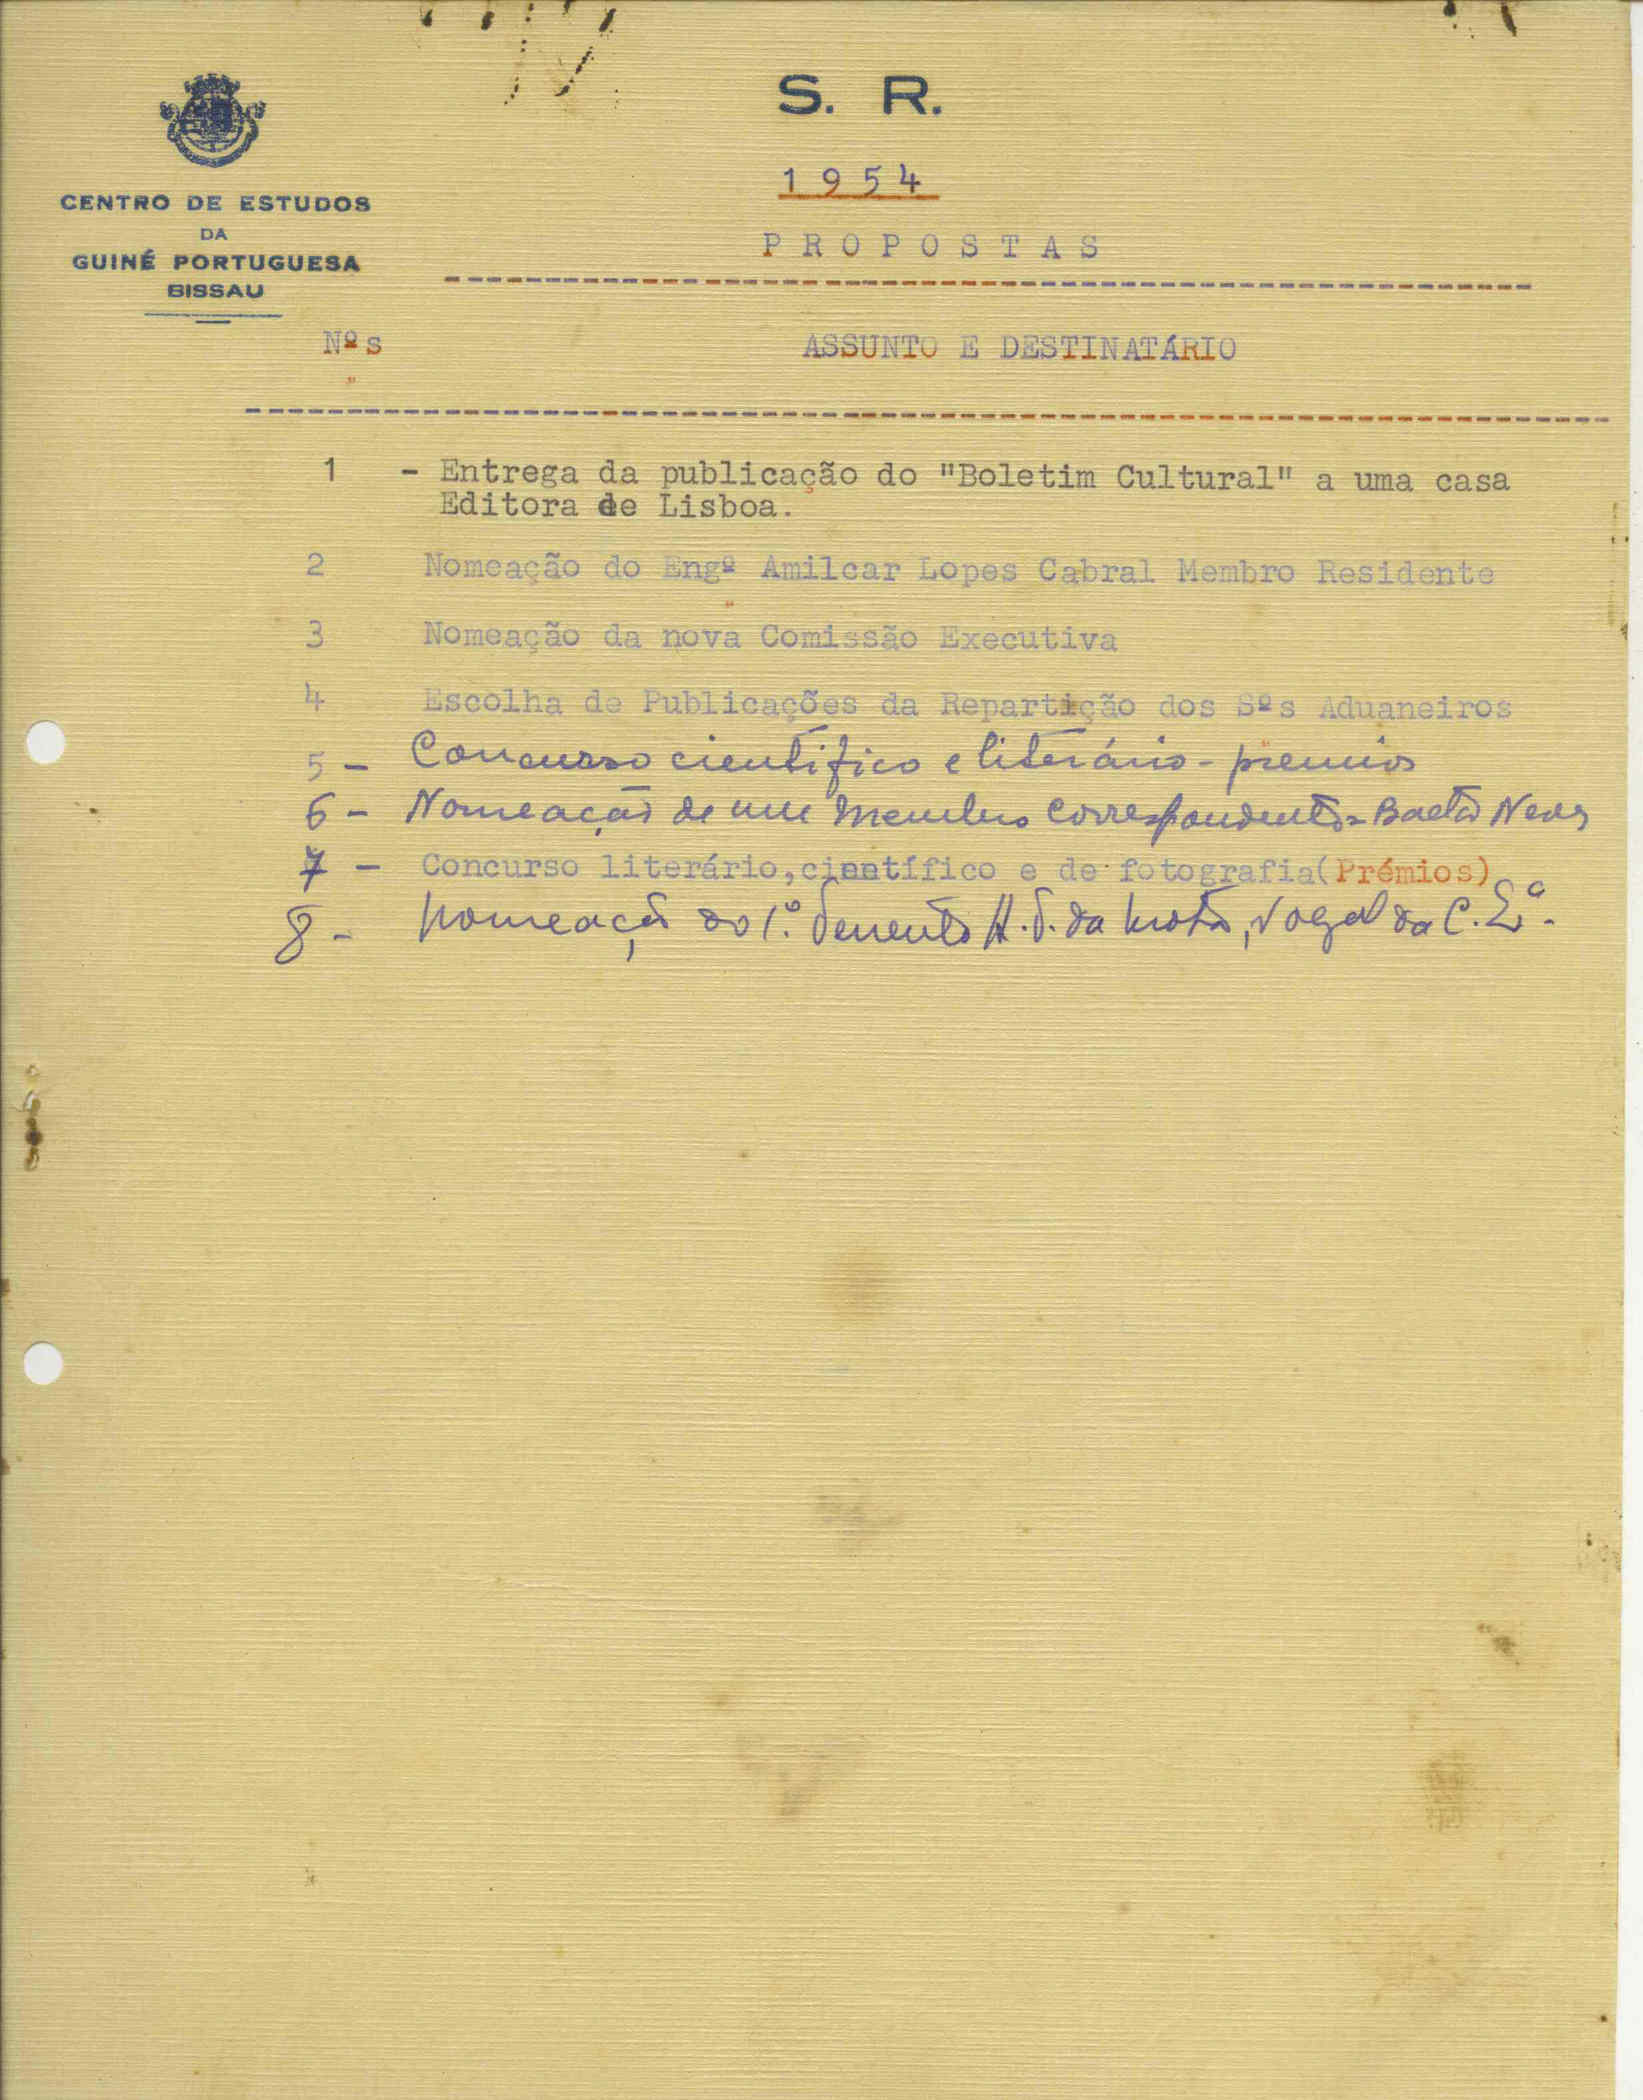 S. R.
CENTRO DE ESTUDOS
DA
GUINÉ PORTUGUESA
BISSAU
1954
PROPOSTAS
Nºs
ASSUNTO E DESTINATÁRIO
1 - Entrega da publicação do "Boletim Cultural" a uma casa
Editora de Lisboa.
2 Nomeação do Engº Amilcar Lopes Cabral Membro Residente
3 Nomeação da nova Comissão Executiva
4 Escolha de Publicações da Repartição dos Sºs Aduaneiros
5 - Concurso cientifico e literário - premios
6 - Nomeação de um Membro correspondente - Baeta Neves
7 - Concurso literário, científico e de fotografia(Prémios)
8 - Nomeação do 1.º Tenente A. T. da Mota, Vogal da C. E.ª -